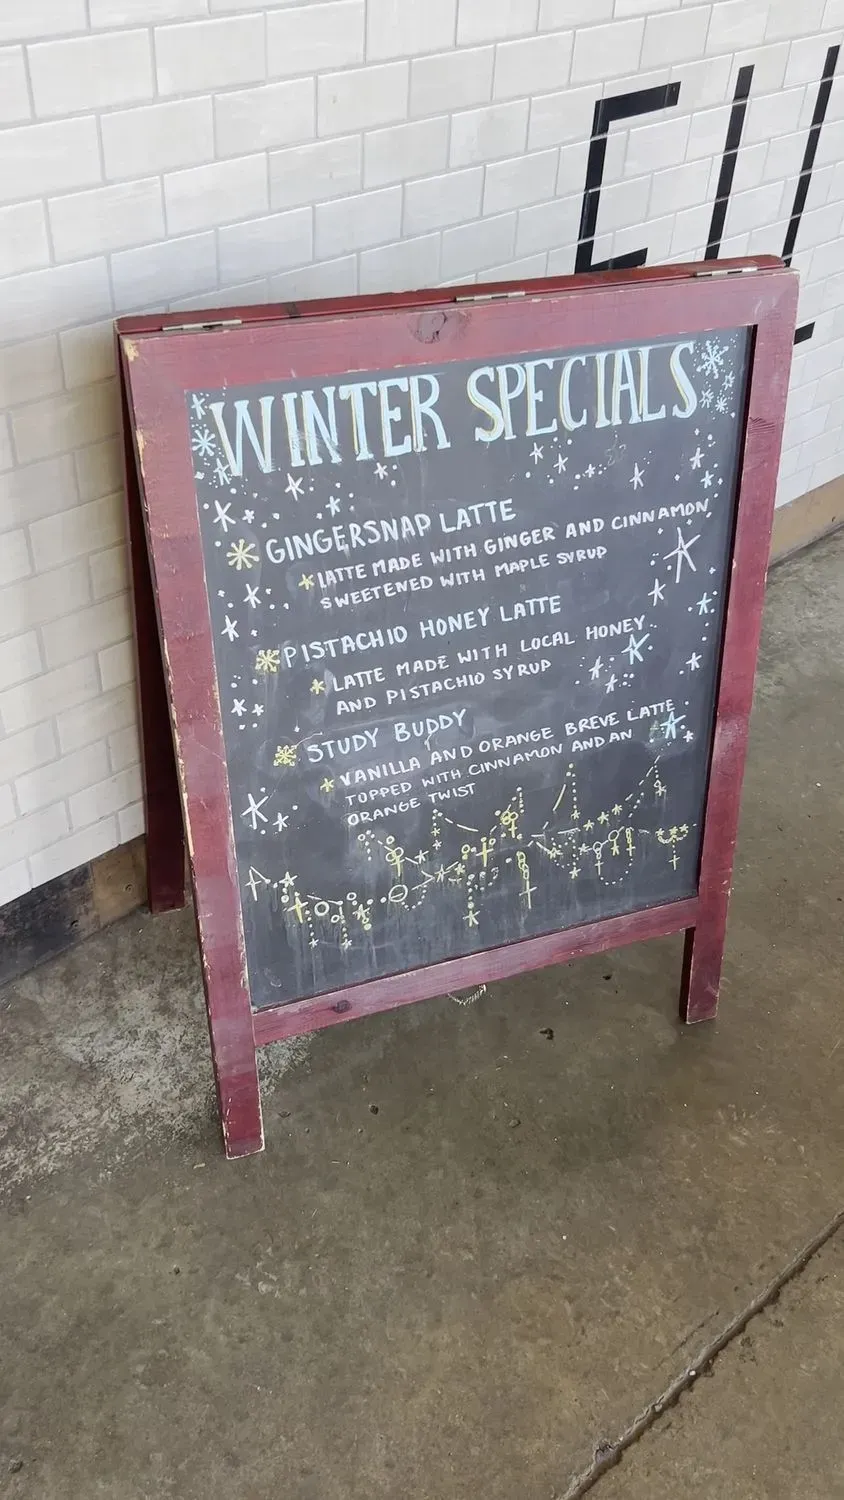 WINTER SPECIALS
GINGERSNAP LATTE
LATTE MADE WITH GINGER AND CINNAMON
SWEETENED WITH MAPLE SYRUP
PISTACHIO HONEY LATTE
LATTE MADE WITH LOCAL HONEY
AND PISTACHIO SYRUP
STUDY BUDDY
VANILLA AND ORANGE BREVE LATTE
TOPPED WITH CINNAMON AND AN
ORANGE TWIST